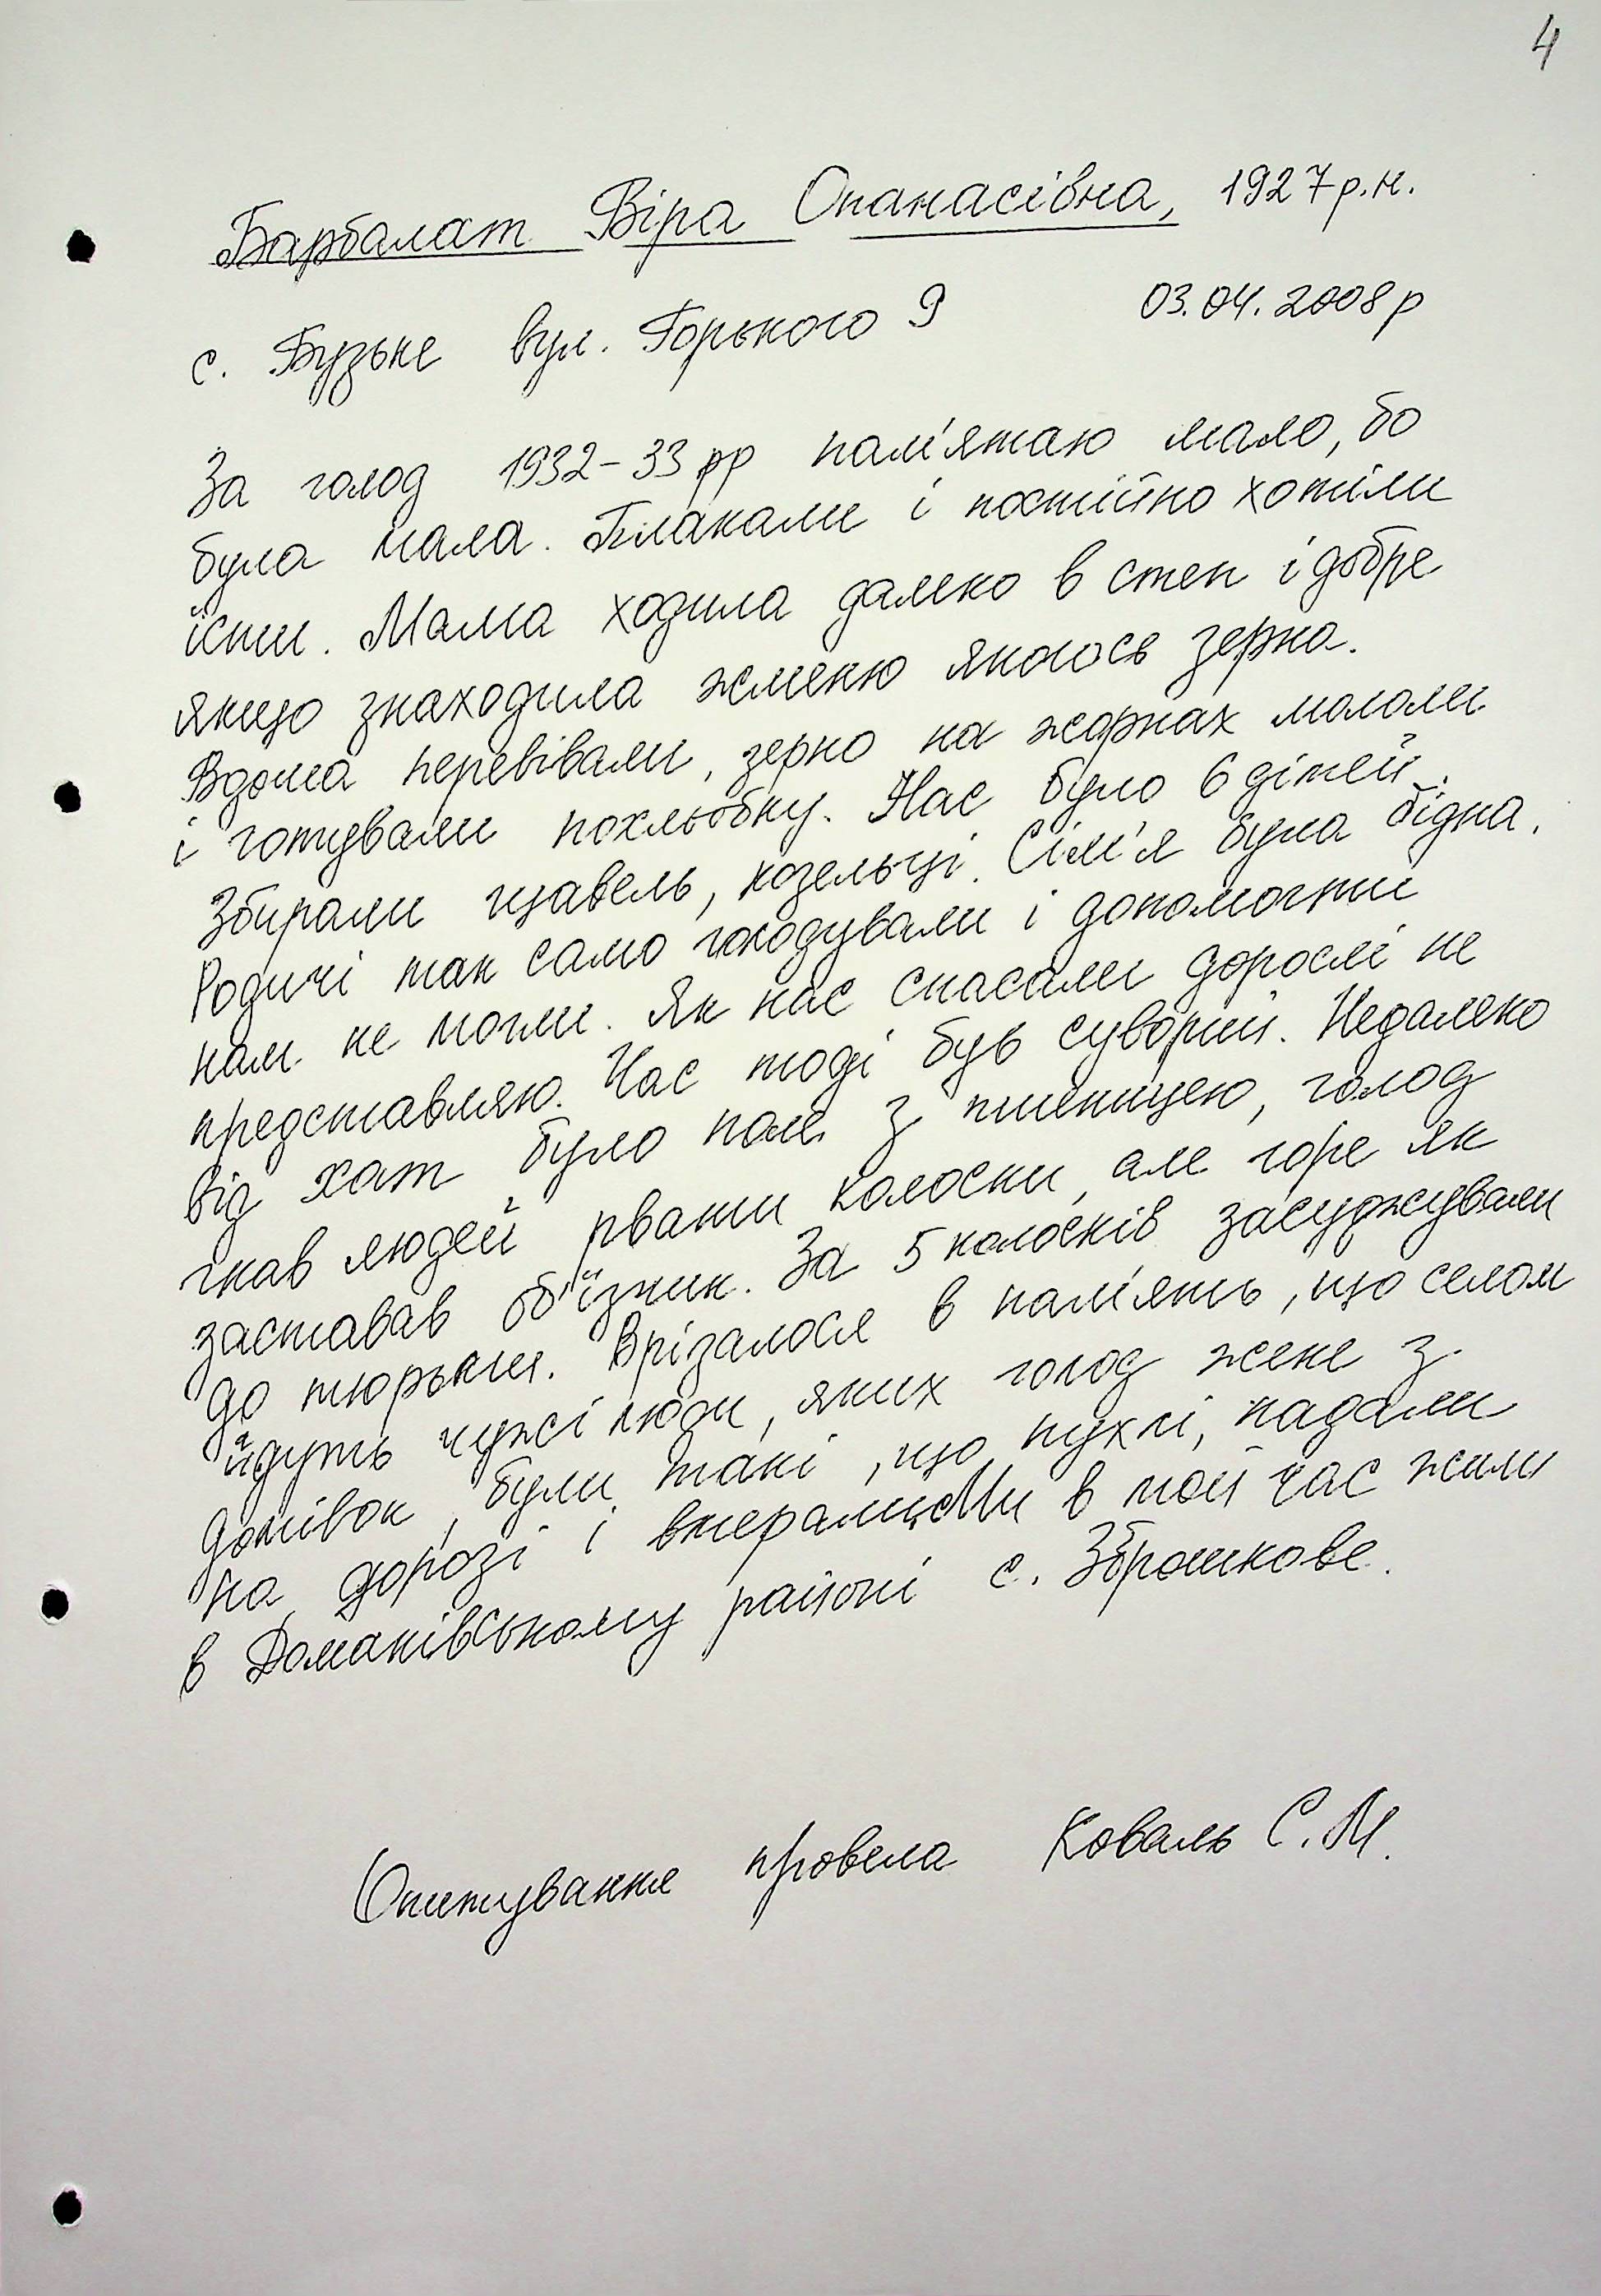 4
Барбалат Віра Опанасівна, 1927 р.н.
с. Бузьке вул. Горького 9 03.04.2008 р
За голод 1932-33 рр пам'ятаю мало, бо
була мала. Плакали і постійно хотіли
їсти. Мама ходила далеко в степ і добре
якщо знаходила жменю якогось зерна.
Вдома перевівали, зерно на жорнах мололи
і готували похльобку. Нас було 6 дітей.
Збирали щавель, козельці. Сім'я була бідна.
Родичі так само голодували і допомогти
нам не могли. Як нас спасали дорослі не
представляю. Час тоді був суворий. Недалеко
від хат було поле з пшеницею, голод
гнав людей рвати колоски, але горе як
заставав об'їзник. За 5 колосків засуджували
до тюрьми. Врізалося в пам'ять, що селом
йдуть чужі люди, яких голод жене з
домівок, були такі, що пухлі, падали
на дорозі і вмерали. Ми в той час жили
в Доманівському районі с. Зброшкове.
Опитування провела Коваль С.М.